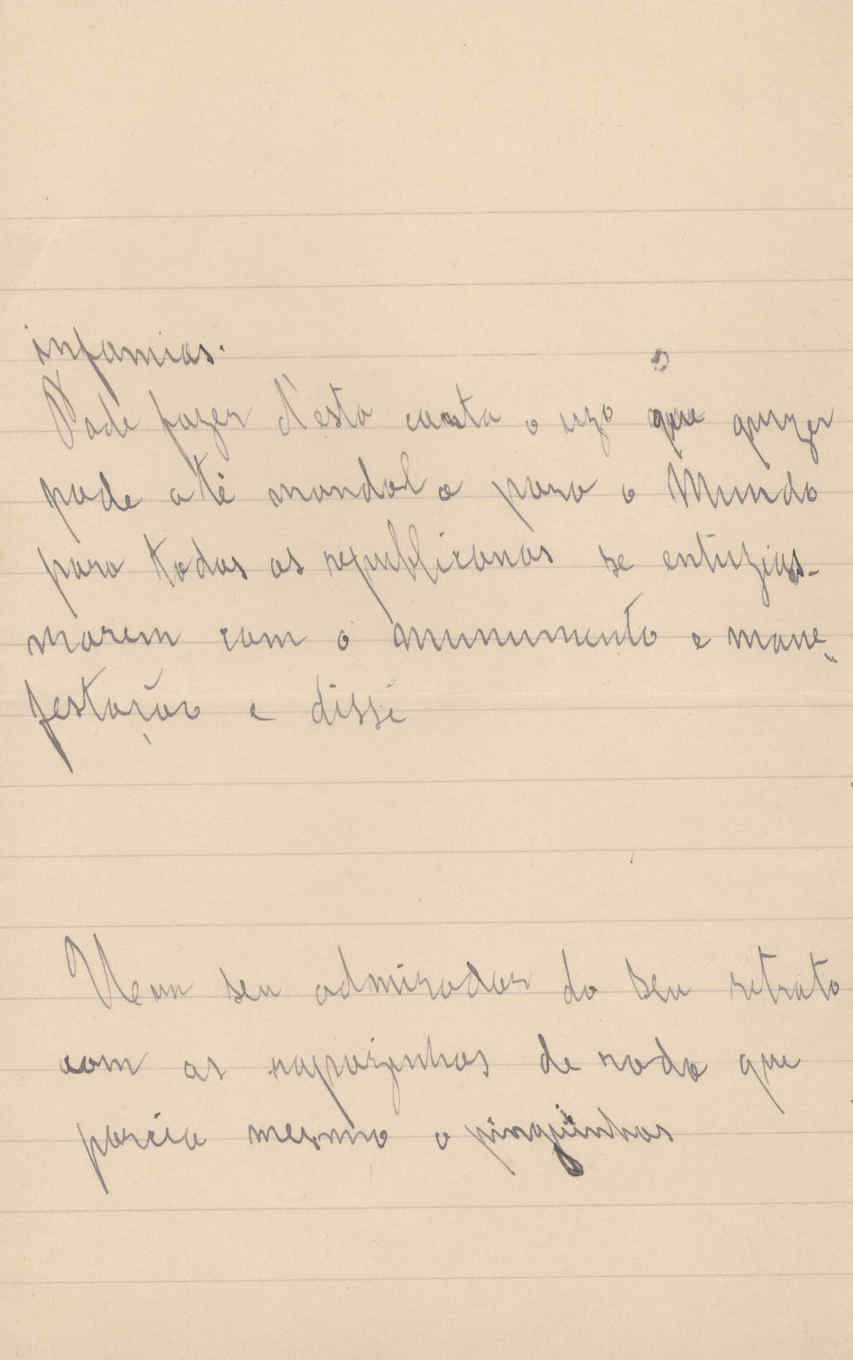 infamias.
Pode fazer d'esta carta o uzo que quizer
pode até mandal a para o Mundo
para todos os republicanos se entuzias-
marem com o munumento e mane-
festação e disse
Um seu admirador do seu retrato
com os rapazinhos de roda que
parcia mesmo o pinguinhas